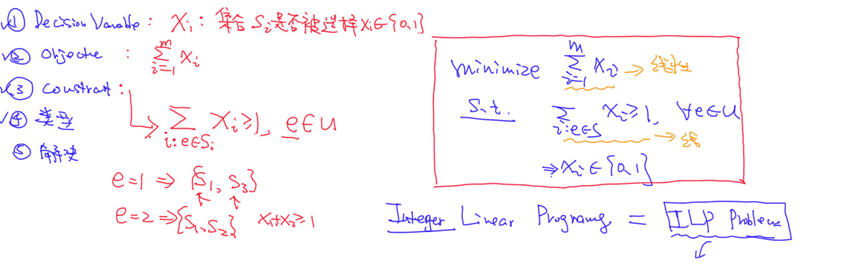 ① Decision Variable: Xi: 集合 Si是否被选择 Xi∈{0,1}
② Objective: ∑_{i=1}^{m} Xi
③ Constraint:
∑_{i:e∈Si} Xi≥1, e∈U
④ 类型
⑤ 解决
e=1 ⇒ {S1, S3}
e=2 ⇒ {S1, S2} X1+X2≥1
minimize ∑_{i=1}^{m} Xi → 线性
s.t. ∑_{i:e∈S} Xi≥1, ∀e∈U
→ 线
⇒ Xi∈{0,1}
Integer Linear Programg = ILP Problem